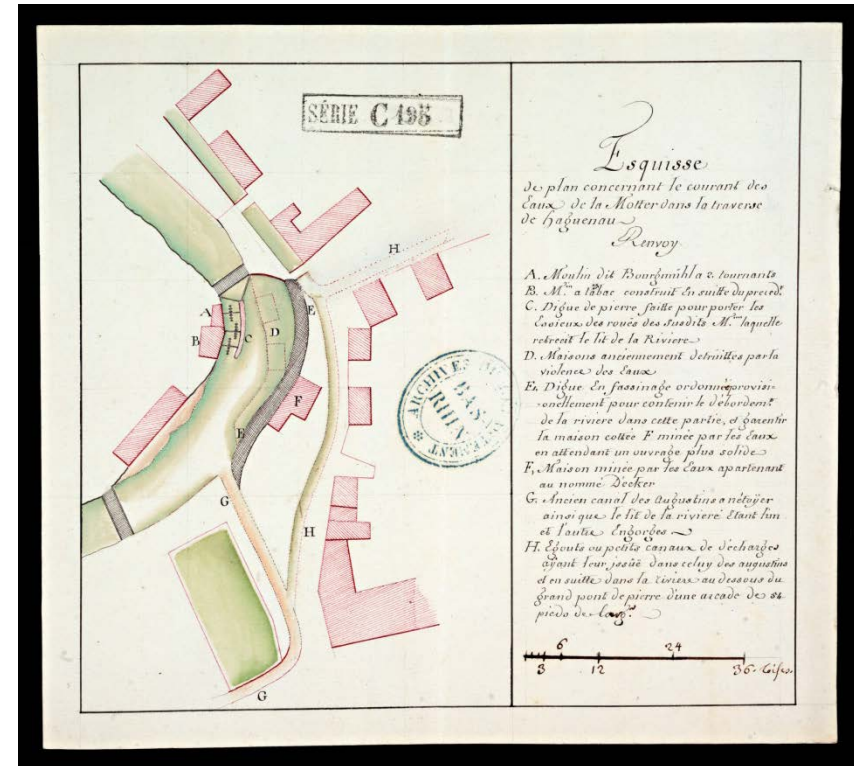 SÉRIE C 195
A
B
C
D
E
F
H
E
G
H
G
ARCHIVES DU DÉPARTEMENT
BAS-
RHIN
Esquisse
de plan concernant le courant des
Eaux de la Motter dans la traverse
de haguenau
Renvoy
A. Moulin dit Bourgmihl a 2. tournants
B. M.in a tabac construit En suitte du preced.t
C. Digue de pierre faitte pour porter les
Essieux des roues des susdits M.ins laquelle
retrecit le lit de la Riviere
D. Maisons anciennement detruittes par la
violence des Eaux
E. Digue En fassinage ordonnée provisi-
onellement pour contenir le débordem.t
de la riviere dans cette partie, et garentir
la maison cottée F minée par les Eaux
en attendant un ouvrage plus solide
F. Maison minée par les Eaux apartenant
au nommé Decker
G. Ancien canal des Augustins a nétoÿer
ainsi que le lit de la riviere Etant l'un
et l'autre Engorges
H. Egouts ou petits canaux de decharges
aÿant leur jssüe dans celuy des augustins
et en suitte dans la riviere au dessous du
grand pont de pierre d'une arcade de
pieds de larg.r
6 24
3 12 36. toises.